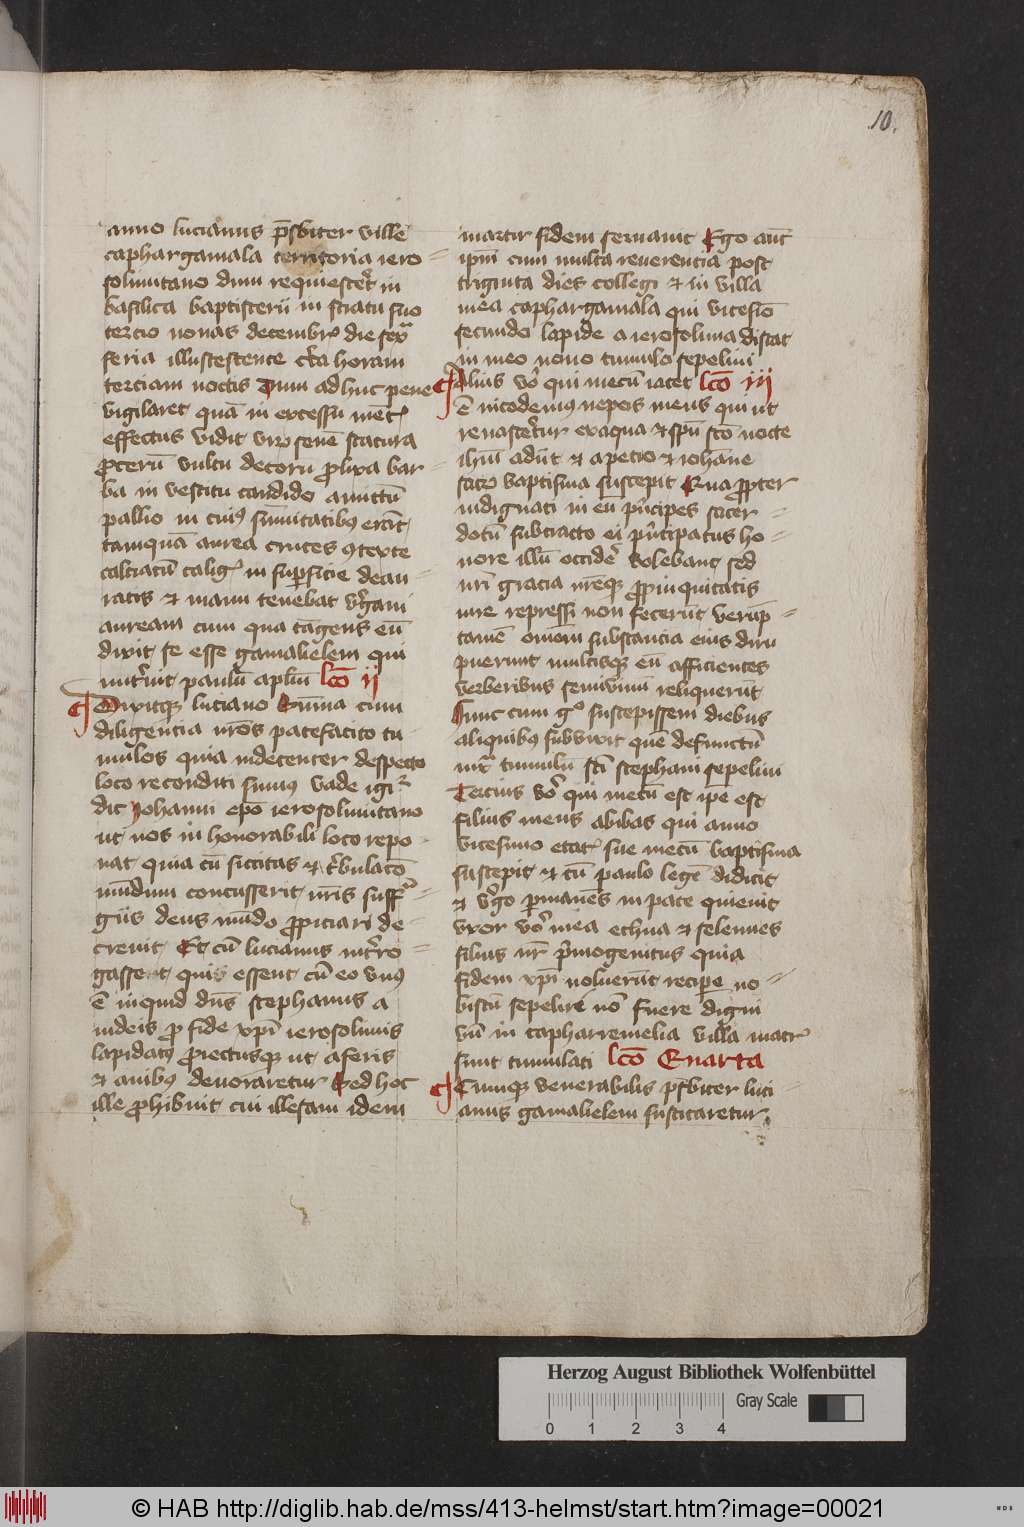 10.
anno lucianus p̄sbiter ville
caphargamala territoria iero-
solimitano dum requiesceret in
basilica baptisterii in stratu suo
tercio nonas decembr̄ die sexta
feria illuscescente circa horam
terciam noctis Dum adhuc pene
vigilaret quā in excessu mētis
effectus vidit virū senē statura
procerū vultu decorū prolixa bar-
ba in vestitu candido amictū
pallio in cuius sūmitatibus erāt
tamquā aurea cruces contexte
calciatū caligis in superficie deau-
ratis et manu tenebat virgam
auream cum qua tāgens eū
dixit se esse gamalielem qui
nutriuit paulū aplūm lcō ij
Dixitque luciano Cum summa
diligentia nr̄os patefacito tu-
mulos quia indecenter despecto
loco reconditi sumus vade igitur
dic Johanni epō ierosolimitano
ut nos in honorabili loco repo-
nat quia cū siccitas et tribulacō
mūdum concusserit nr̄is suffra-
giis deus mūdo propiciari de-
creuit Et cū lucianus interro-
gasset quis essent cū eo vnus
ē inquid dn̄s stephanus a
iudeis pro fide xp̄i ierosolimis
lapidatus proiectusque ut a feris
et auibus deuoraretur Sed hoc
ille prohibuit cui illesam idem
martir fidem seruauit Ego aut̄
ipm̄ cum multa reuerencia post
triginta dies collegi et in villa
mea caphargamala qui vicesimo
secundo lapide a ierosolima distat
in meo nouo tumulo sepeliui
Alius vero qui mecū iacet lcō iij
ē nicodemus nepos meus qui ut
renasceretur ex aqua et spū scō nocte
ihm̄ adiit et a petro et iohāne
sacrum baptisma suscepit Quapropter
indignati in eū principes sacer-
dotū subtracto ei principatus ho-
nore illū occidere volebant sed
nr̄i gracia nr̄eque propinquitatis
iure repressi non fecerūt verūp-
tamē omnem substancia eius diri
puerunt multisque eū afficientes
verberibus semiuiuū reliquerūt
Hunc cum ergo suscepissem diebus
aliquibus subvixit quē defunctū
iuxta tumulū sc̄i stephani sepeliui
Tercius vero qui mecū est ip̄e est
filius meus abibas qui anno
vicesimo etatis sue mecū baptisma
suscepit et cū paulo legē didicit
et virgo permanēs in pace quieuit
vxor vero mea ethna et selennes
filius nr̄ primogenitus quia
fidem xp̄i noluerūt recipere no-
biscū sepelire non fuere digni
vn̄ in capharremelia villa matris
sunt tumulati lcō Quarta
Cumque venerabilis p̄sbiter luci-
anus gamalielem suscitaretur
Herzog August Bibliothek Wolfenbüttel
0 1 2 3 4 Gray Scale
© HAB http://diglib.hab.de/mss/413-helmst/start.htm?image=00021